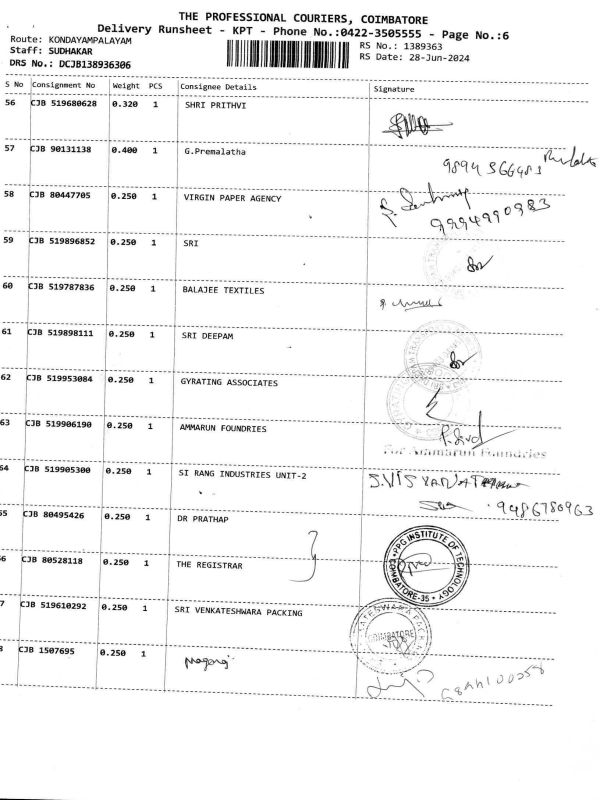 THE PROFESSIONAL COURIERS, COIMBATORE
Delivery Runsheet - KPT - Phone No.:0422-3505555 - Page No.:6
Route: KONDAYAMPALAYAM
Staff: SUDHAKAR
DRS No.: DCJB138936306
RS No.: 1389363
RS Date: 28-Jun-2024
S No Consignment No Weight PCS Consignee Details Signature
56 CJB 519680628 0.320 1 SHRI PRITHVI
57 CJB 90131138 0.400 1 G.Premalatha
9894366483
58 CJB 80447705 0.250 1 VIRGIN PAPER AGENCY
9994990983
59 CJB 519896852 0.250 1 SRI
60 CJB 519787836 0.250 1 BALAJEE TEXTILES
61 CJB 519898111 0.250 1 SRI DEEPAM
62 CJB 519953084 0.250 1 GYRATING ASSOCIATES
63 CJB 519906190 0.250 1 AMMARUN FOUNDRIES
For Ammarun Foundries
64 CJB 519905300 0.250 1 SI RANG INDUSTRIES UNIT-2
9486780963
65 CJB 80495426 0.250 1 DR PRATHAP
PPG INSTITUTE OF TECHNOLOGY
COIMBATORE-35
66 CJB 80528118 0.250 1 THE REGISTRAR
7 CJB 519610292 0.250 1 SRI VENKATESHWARA PACKING
COIMBATORE
8 CJB 1507695 0.250 1